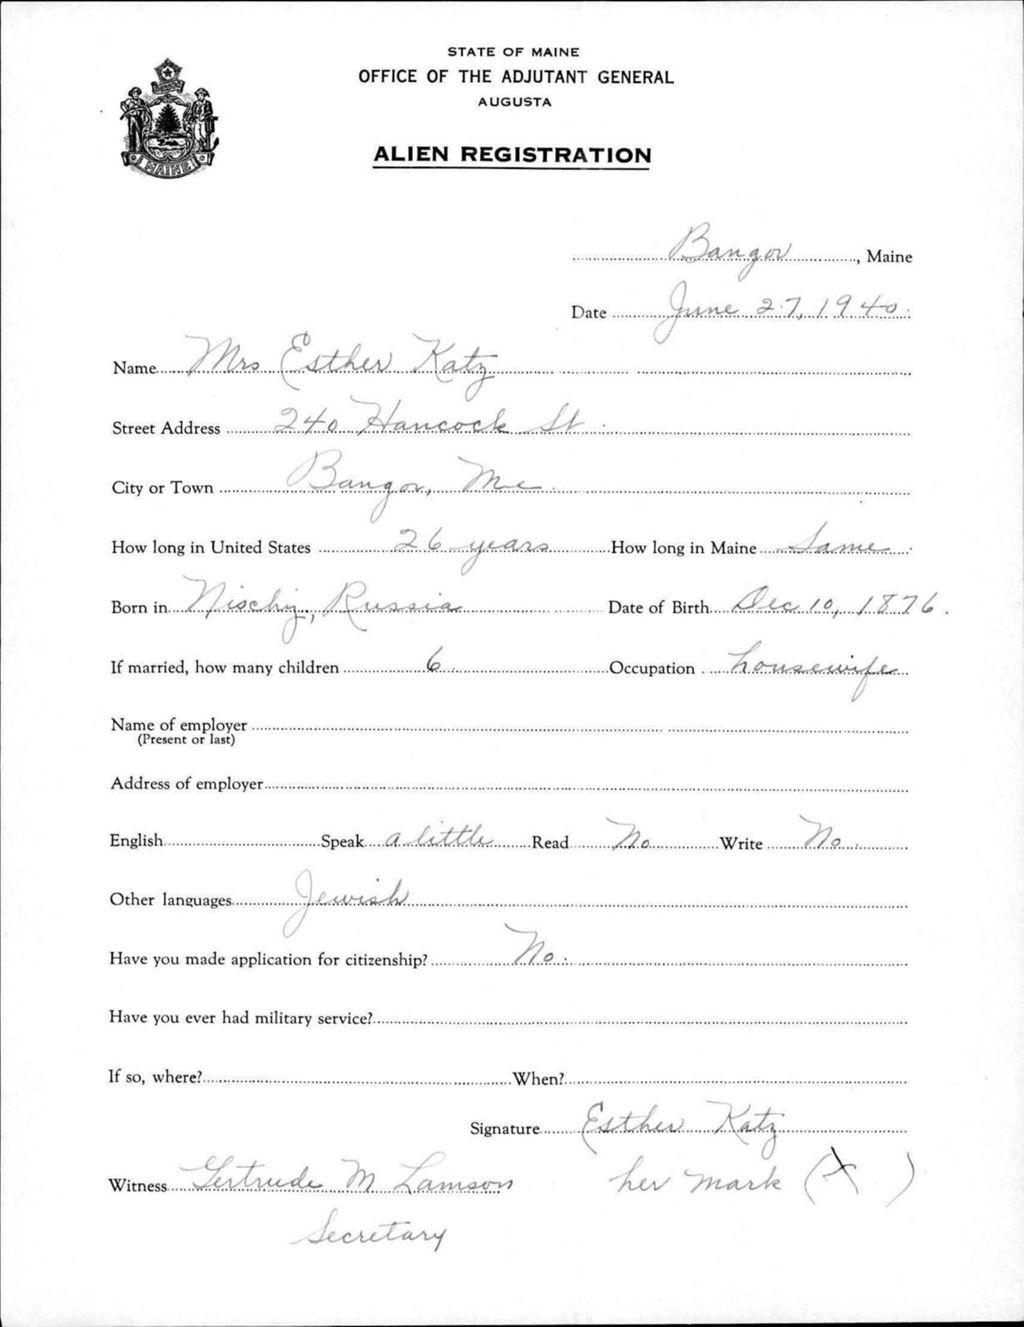 STATE OF MAINE
OFFICE OF THE ADJUTANT GENERAL
AUGUSTA
ALIEN REGISTRATION
MAINE
Bangor, Maine
Date June 27, 1940.
Name Mrs Esther Katz
Street Address 240 Hancock St.
City or Town Bangor, Me.
How long in United States 26 years How long in Maine Same
Born in Nischy, Russia Date of Birth Dec 10, 1876.
If married, how many children 6 Occupation housewife
Name of employer
(Present or last)
Address of employer
English Speak a little Read No Write No.
Other languages Jewish
Have you made application for citizenship? No.
Have you ever had military service?
If so, where? When?
Signature Esther Katz
Witness Gertrude M Lamson her mark (X)
Secretary